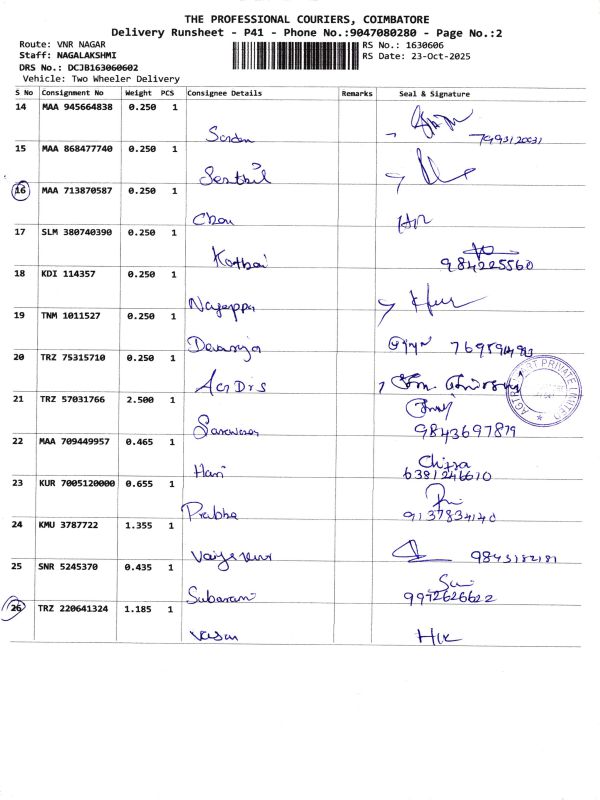 THE PROFESSIONAL COURIERS, COIMBATORE
Delivery Runsheet - P41 - Phone No.:9047080280 - Page No.:2
Route: VNR NAGAR
RS No.: 1630606
Staff: NAGALAKSHMI
RS Date: 23-Oct-2025
DRS No.: DCJB163060602
Vehicle: Two Wheeler Delivery
S No Consignment No Weight PCS Consignee Details Remarks Seal & Signature
14 MAA 945664838 0.250 1
15 MAA 868477740 0.250 1
Senthil
16 MAA 713870587 0.250 1
17 SLM 380740390 0.250 1
Kothai
984225560
18 KDI 114357 0.250 1
Nagappa
19 TNM 1011527 0.250 1
20 TRZ 75315710 0.250 1
21 TRZ 57031766 2.500 1
9843697879
22 MAA 709449957 0.465 1
Hari
Chitra
6381246610
23 KUR 7005120000 0.655 1
Prabha
9137834140
24 KMU 3787722 1.355 1
9843182181
25 SNR 5245370 0.435 1
Subarani
9972626622
26 TRZ 220641324 1.185 1
Vasan